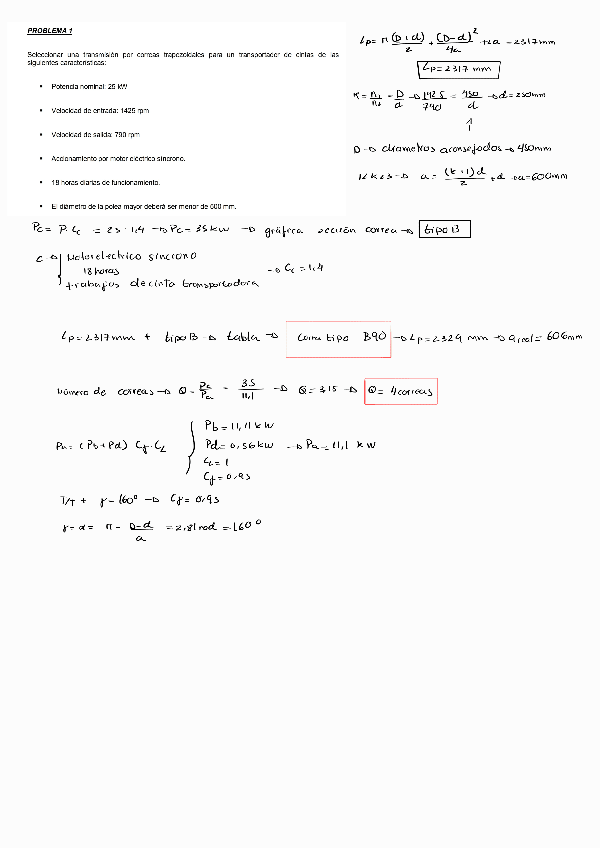 PROBLEMA 1
Seleccionar una transmisión por correas trapezoidales para un transportador de cintas de las
siguientes características:
• Potencia nominal: 25 kW
• Velocidad de entrada: 1425 rpm
• Velocidad de salida: 790 rpm
• Accionamiento por motor eléctrico síncrono.
• 18 horas diarias de funcionamiento.
• El diámetro de la polea mayor deberá ser menor de 600 mm.
Lp = π (D+d)/2 + (D-d)²/4a + 2a = 2317 mm
Lp = 2317 mm
K = n1/n2 = D/d → 1425/790 = 450/d → d = 250mm
D → diametros aconsejados → 450mm
1≤K≤3 → a = (k+1)d/2 + d → a=600mm
Pc = P·Cc = 25·1,4 → Pc = 35 kW → gráfica sección correa → tipo B
c → Motor electrico sincrono
18 horas
trabajos de cinta transportadora
→ Cc = 1,4
Lp = 2317 mm + tipo B → tabla → Correa tipo B90 → Lp = 2324 mm → a real = 606mm
Número de correas → Q = Pc/Pa = 35/11,1 → Q = 3,15 → Q = 4 correas
Pa = (Pb + Pd) Cγ · CL
Pb = 11,11 kW
Pd = 0,56 kW → Pa = 11,1 kW
CL = 1
Cγ = 0,95
T/T + γ = 160° → Cγ = 0,95
γ = α = π - D-d/a = 2,81 rad = 160°